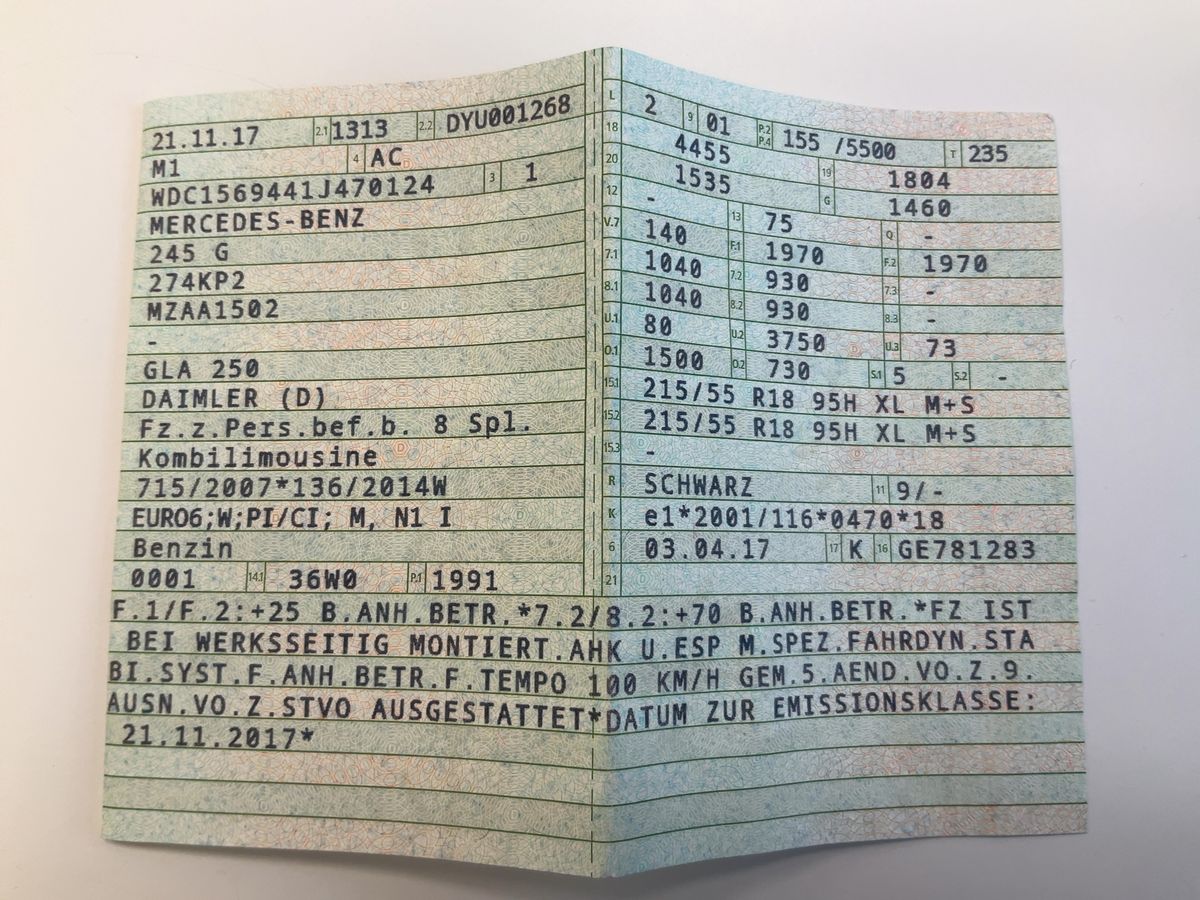 21.11.17 2.1 1313 2.2 DYU001268
M1 4 AC
WDC1569441J470124 3 1
MERCEDES-BENZ
245 G
274KP2
MZAA1502
-
GLA 250
DAIMLER (D)
Fz.z.Pers.bef.b. 8 Spl.
Kombilimousine
715/2007*136/2014W
EURO6;W;PI/CI; M, N1 I
Benzin
0001 14.1 36W0 P.1 1991
L 2 9 01 P.2 P.4 155 /5500 T 235
18 4455 19 1804
20 1535 G 1460
12 - 13 75 Q -
V.7 140 F.1 1970 F.2 1970
7.1 1040 7.2 930 7.3 -
8.1 1040 8.2 930 8.3 -
U.1 80 U.2 3750 U.3 73
O.1 1500 O.2 730 S.1 5 S.2 -
15.1 215/55 R18 95H XL M+S
15.2 215/55 R18 95H XL M+S
15.3 -
R SCHWARZ 11 9/-
K e1*2001/116*0470*18
6 03.04.17 17 K 16 GE781283
21
F.1/F.2:+25 B.ANH.BETR.*7.2/8.2:+70 B.ANH.BETR.*FZ IST
BEI WERKSSEITIG MONTIERT.AHK U.ESP M.SPEZ.FAHRDYN.STA
BI.SYST.F.ANH.BETR.F.TEMPO 100 KM/H GEM.5.AEND.VO.Z.9.
AUSN.VO.Z.STVO AUSGESTATTET*DATUM ZUR EMISSIONSKLASSE:
21.11.2017*